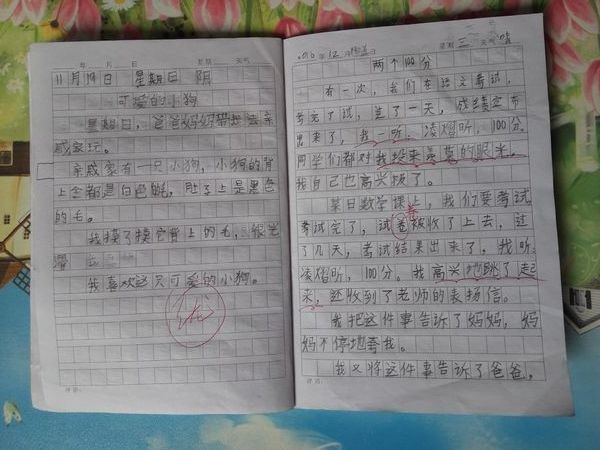 年 月 日 星期 天气
11月19日 星期日 阴
可爱的小狗
星期日，爸爸妈妈带我去亲
戚家玩。
亲戚家有一只小狗，小狗的背
上全都是白色毛，肚子上是黑色
的毛。
我摸了摸它背上的毛，很光
滑
我喜欢这只可爱的小狗。
优
评语：
年12月 日 星期三 天气晴
两个100分
有一次，我们在语文考试，
考完了试，过了一天，成绩宣布
出来了，我一听，凌熠昕，100分。
同学们都对我投来羡慕的眼光。
我自己也高兴极了。
某日数学课上，我们要考试，
卷
考试完了，试卷被收了上去，过
了几天，考试结果出来了，我听：
凌熠昕，100分。我高兴地跳了起
来，还收到了老师的表扬信。
我把这件事告诉了妈妈，妈
妈不停地夸我。
我又将这件事告诉了爸爸，
评语：